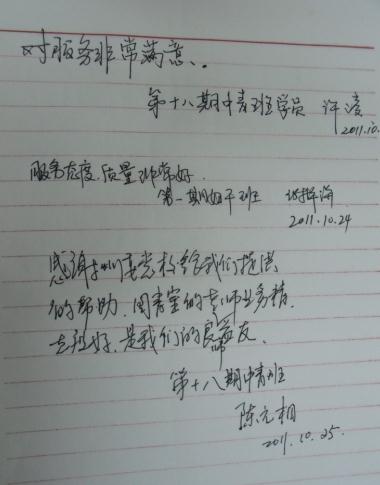 对服务非常满意.
第十八期中青班学员 许凌
2011.10.
服务态度.质量非常好.
第一期妇干班
2011.10.24
感谢市委党校给我们提供
的帮助.图书室的老师业务精.
态度好.是我们的良师益友.
第十八期中青班
陈元相
2011.10.25.